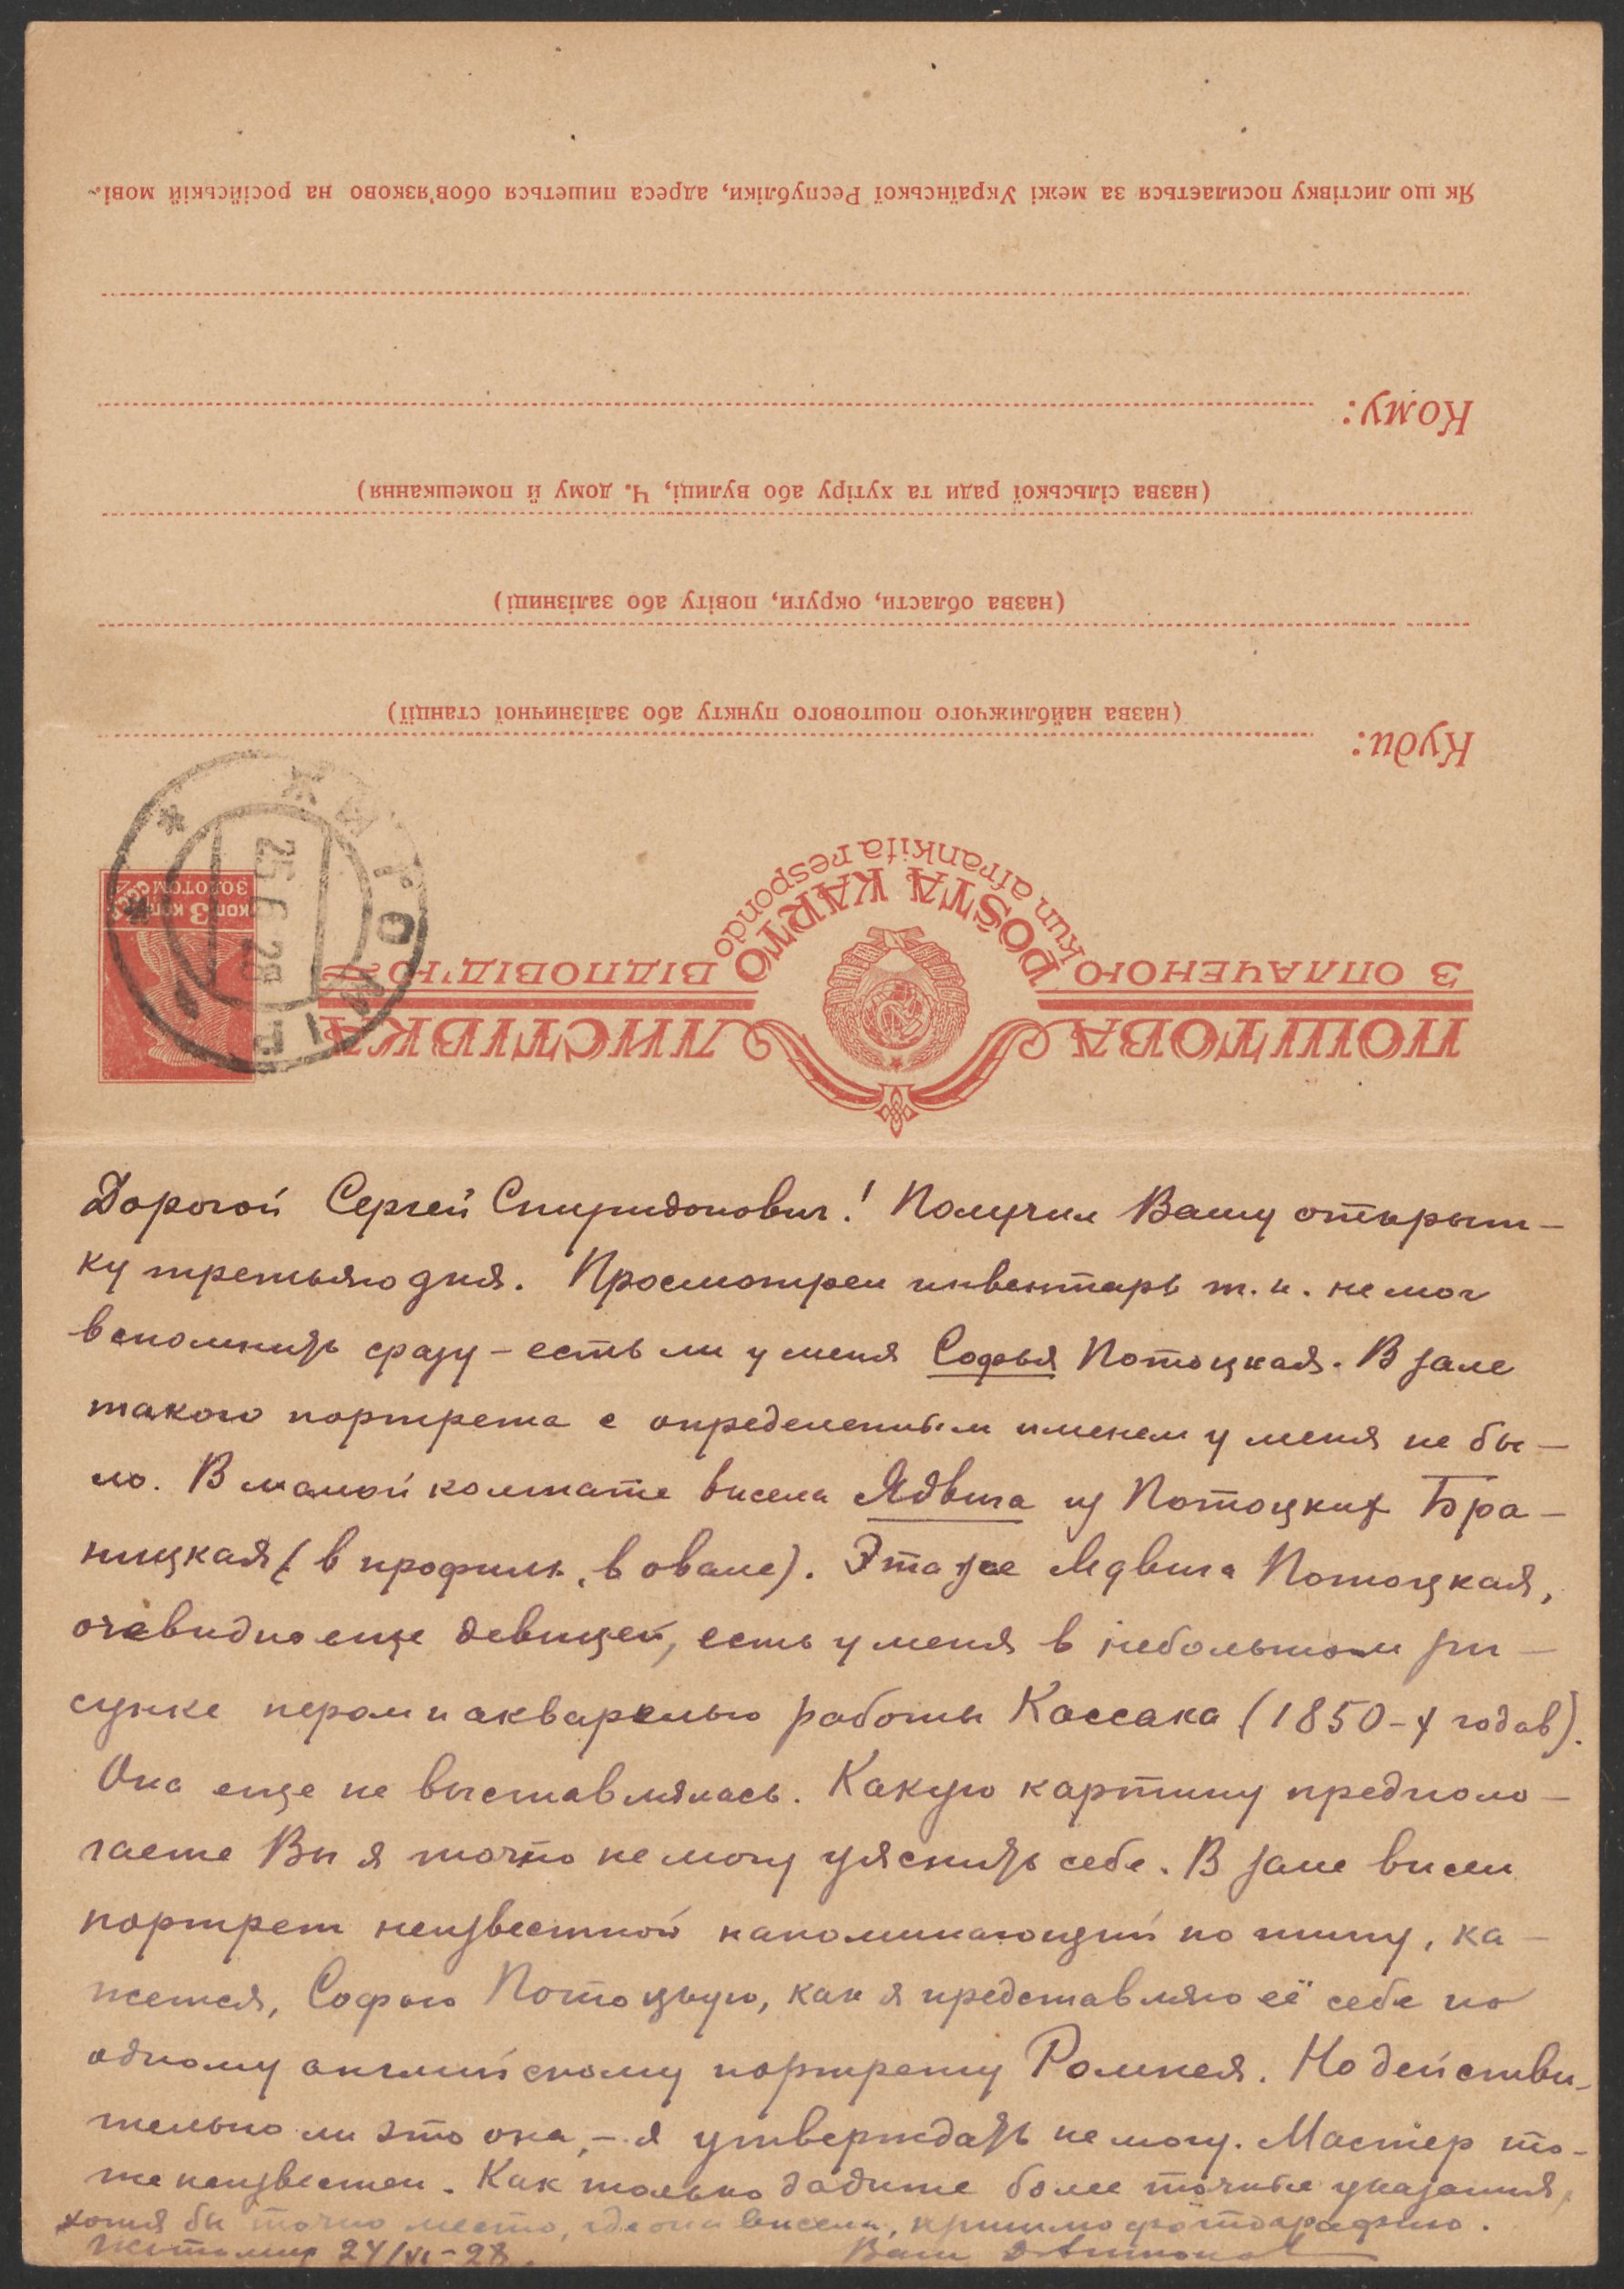 Як що листівку посилається за межі Української Республіки, адреса пишеться обов'язково на російській мові.
Кому:
(назва сільської ради та хутіру або вулиці, Ч. дому й помешкання)
(назва области, округи, повіту або залізниці)
(назва найближчого поштового пункту або залізничної станції)
Куди:
POŜTA KARTO
kun afrankita respondo
З ОПЛАЧЕНОЮ ВІДПОВІД'Ю
ПОШТОВА ЛИСТІВКА
коп 3 коп
ЗОЛОТОМ
ЖИТОМИР
25 6 28
Дорогой Сергей Спиридонович! Получил Вашу открыт-
ку третьяго дня. Просмотрел инвентарь т. к. не мог
вспомнить сразу – есть ли у меня Софья Потоцкая. В зале
такого портрета с определенным именем у меня не бы-
ло. В малой комнате висела Ядвига из Потоцких Бра-
ницкая (в профиль, в овале). Эта же Ядвига Потоцкая,
очевидно еще девицей, есть у меня в небольшом ри-
сунке пером и акварелью работы Коссака (1850-х годов).
Она еще не выставлялась. Какую картину предпола-
гаете Вы я точно не могу уяснить себе. В зале висел
портрет неизвестной напоминающий по типу, ка-
жется, Софью Потоцкую, как я представляю её себе по
одному английскому портрету Ромнея. Но действи-
тельно ли это она, – я утверждать не могу. Мастер то-
же неизвестен. Как только дадите более точные указания,
хотя бы точно место, где она висела, пришлю фотографию.
Житомир 24/VI–28. Ваш